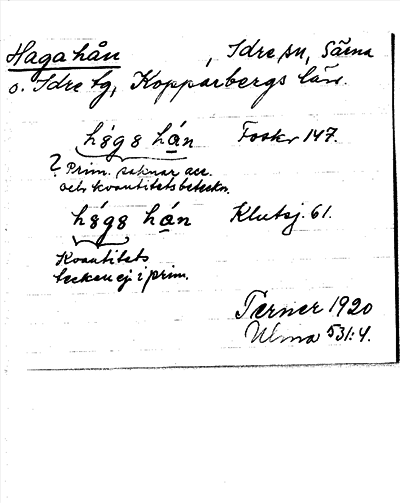 Hagahån , Idre sn, Särna
o. Idre tg, Kopparbergs län.
hǻgǝ hȧ́n Foskv 147.
? Prim. saknar acc.
och kvantitetsbeteckn.
hǻgǝ hȧ́n Klutsj. 61.
Kvantitets
tecken ej i prim.
Terner 1920
Ulma 531:4.